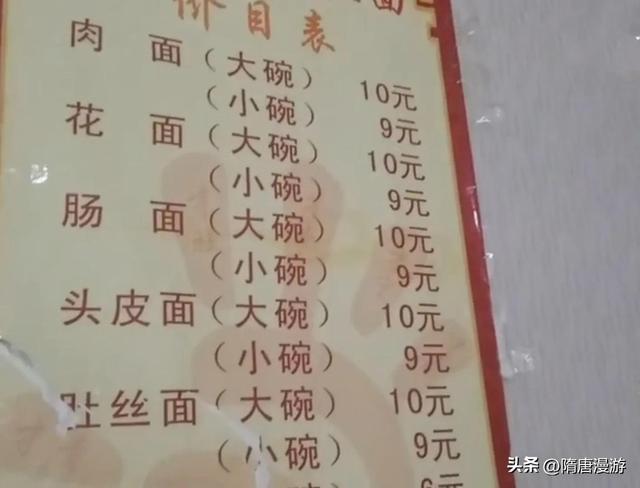 价目表
肉面（大碗） 10元
（小碗） 9元
花面（大碗） 10元
（小碗） 9元
肠面（大碗） 10元
（小碗） 9元
头皮面（大碗） 10元
（小碗） 9元
肚丝面（大碗） 10元
（小碗） 9元
6元
头条 @隋唐漫游